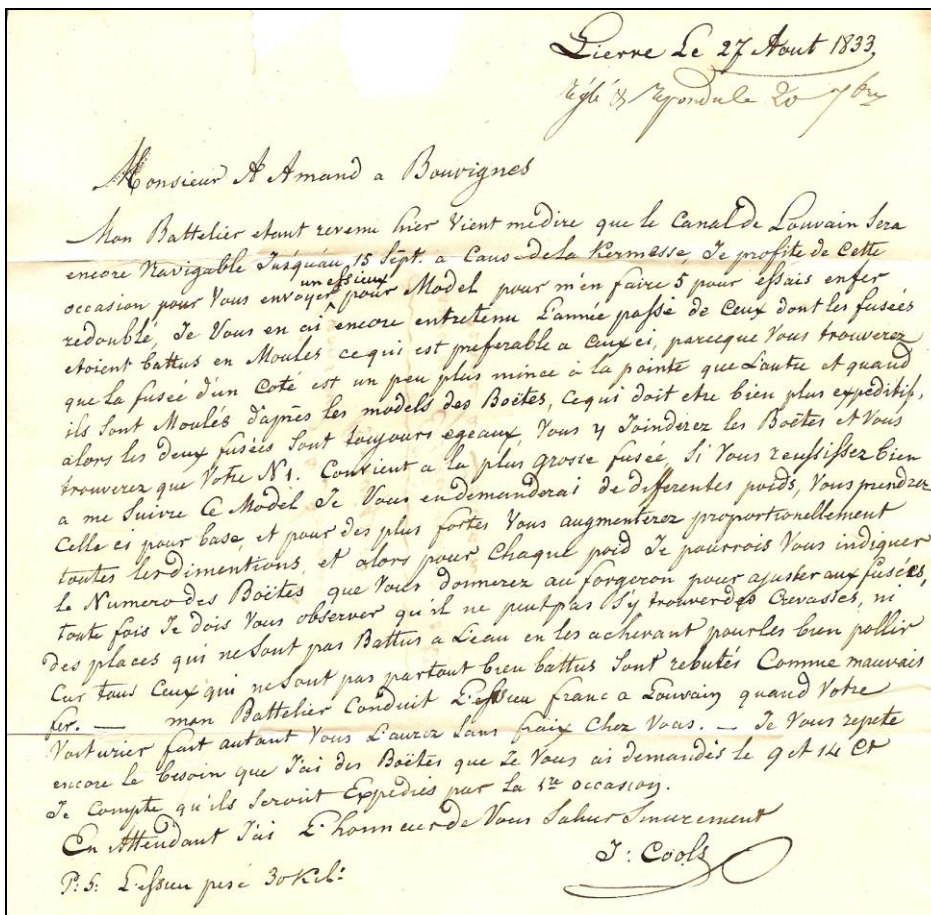 Lierre Le 27 Aout 1833,
réglé & repondu le 20 7bre
Monsieur A Amand a Bouvignes
Mon Battelier etant revenu hier Vient me dire que le Canal de Louvain Sera
encore Navigable Jusqu'au 15 Sept. a Cause de la Kermesse, Je profite de Cette
un essieux
occasion pour Vous envoyer pour Model pour m'en faire 5 pour essais en fer
redoublé, Je Vous en ai encore entretenu L'année passé de Ceux dont les fuseés
etoient battus en Moules ce qui est preferable a Ceux ci, parceque Vous trouverez
que la fuseé d'un Coté est un peu plus mince à la pointe que L'autre et quand
ils Sont Moulés d'après les models des Boëtes, Ce qui doit etre bien plus expeditif,
alors les deux fuseés Sont toujours egeaux, Vous y Joinderez les Boëtes et Vous
trouverez que Votre N 1. Convient a la plus grosse fuseé, Si Vous reusissez bien
a me Suivre Ce Model Je Vous en demanderai de differentes poids, Vous prendrez
Celle ci pour base, et pour des plus fortes Vous augmenterez proportionellement
toutes les dimentions, et alors pour Chaque poid Je pourrois Vous indiquer
le Numero des Boëtes que Vous donnerez au forgeron pour ajuster aux fuseés,
toute fois Je dois Vous observer qu'il ne peut pas S'y trouver des Crevasses, ni
des places qui ne Sont pas Battus a L'eau en les achevant pour les bien pollir
Car tous Ceux qui ne Sont pas partout bien battus Sont rebutés Comme mauvais
fer. — mon Battelier Conduit L'essieu franc a Louvain quand Votre
Voiturier fait autant Vous L'aurez Sans fraix Chez Vous. — Je Vous repete
encore le besoin que J'ai des Boëtes que Je Vous ai demandés le 9 et 14 Ct
Je Compte qu'ils Seroit Expediés par la 1re occasion.
En Attendant J'ai L'honneur de Vous Saluer
J: Cools
P: S: L'essieu pese 30 Kil: